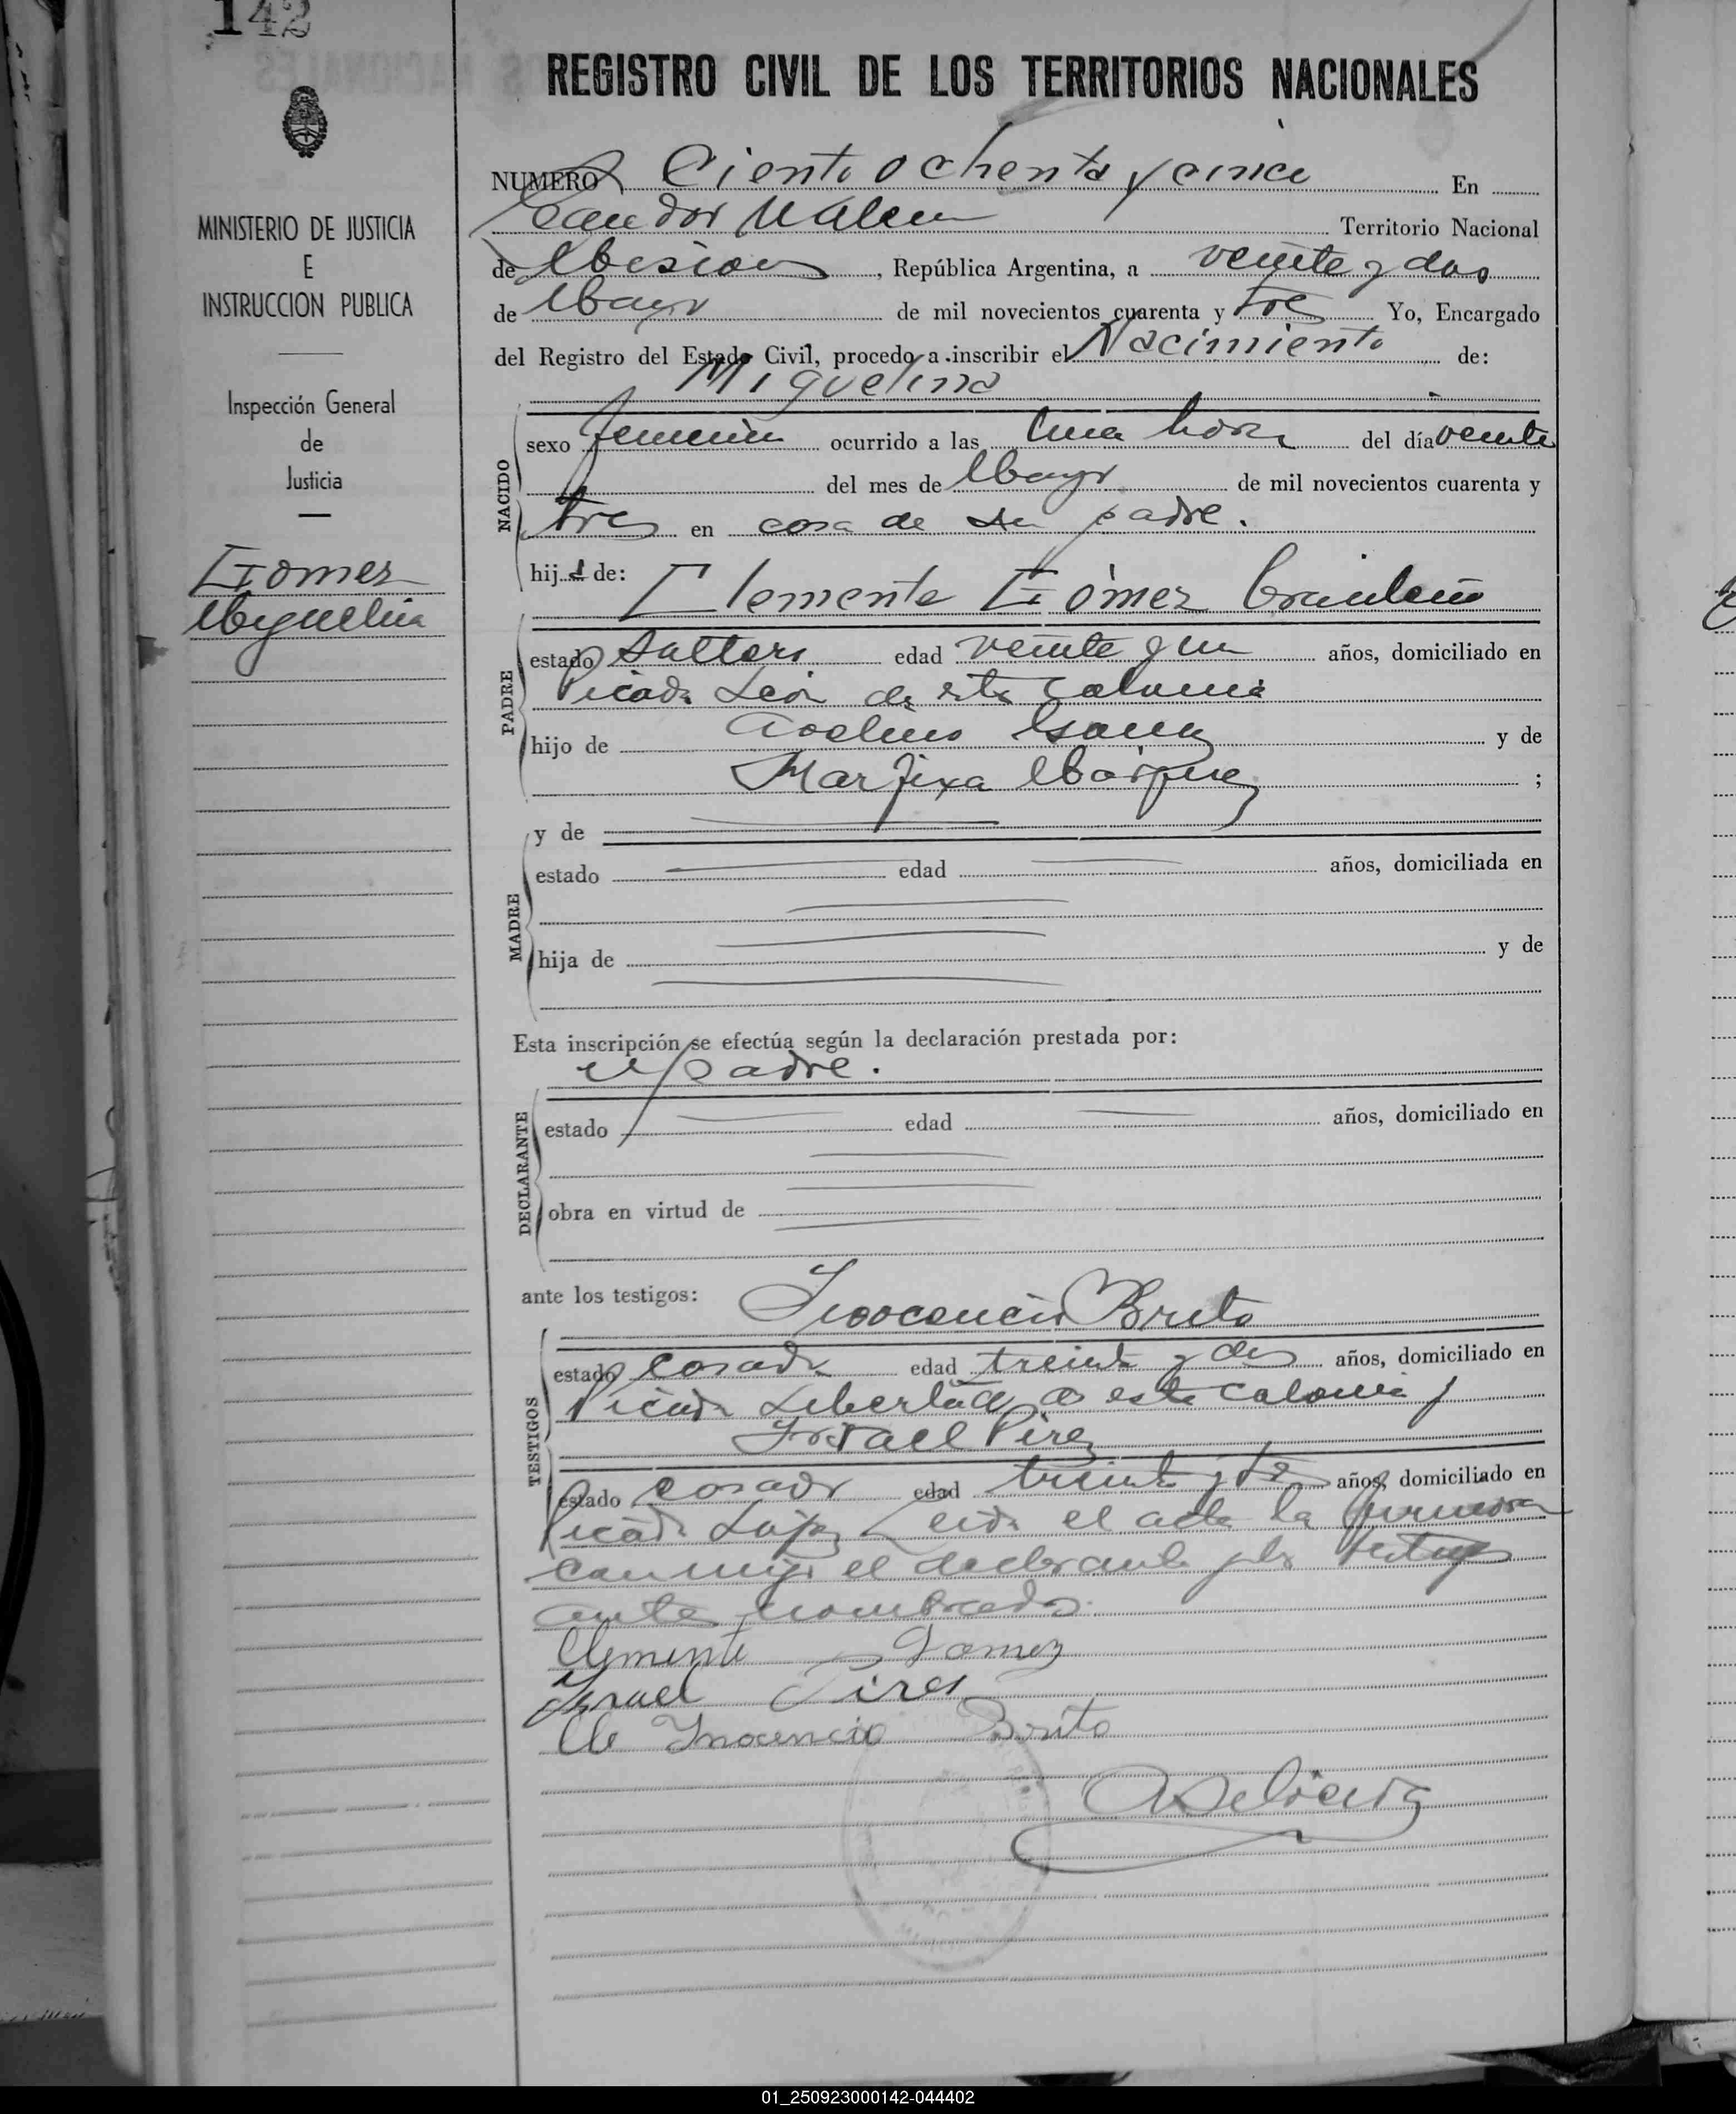 142
REGISTRO CIVIL DE LOS TERRITORIOS NACIONALES
MINISTERIO DE JUSTICIA
E
INSTRUCCION PUBLICA
Inspección General
de
Justicia
Gomez
Miguelina
NUMERO Ciento ochenta y cinco En
Territorio Nacional
de Misiones, República Argentina, a veinte y dos
de Mayo de mil novecientos cuarenta y tres Yo, Encargado
del Registro del Estado Civil, procedo a inscribir el Nacimiento de:
Miguelina
NACIDO
sexo femenino ocurrido a las una hora del día veinte
del mes de Mayo de mil novecientos cuarenta y
tres en casa de su padre.
hija de: Clemente Gómez brasileño
PADRE
estado soltero edad veinte y un años, domiciliado en
Picada León de esta colonia
hijo de Avelino Gomez y de
Marquez ;
MADRE
y de
estado edad años, domiciliada en
hija de y de
Esta inscripción se efectúa según la declaración prestada por:
el padre.
DECLARANTE
estado edad años, domiciliado en
obra en virtud de
ante los testigos: Inocencio Brito
TESTIGOS
estado casado edad treinta y dos años, domiciliado en
Picada Libertad de esta colonia y
Israel Pirez
estado casado edad treinta y tres años, domiciliado en
Picada López Leida el acta la firmaron
conmigo el declarante y los testigos
antes nombrados.
Clemente Gomez
Israel Pires
Inocencio Brito
01_250923000142-044402